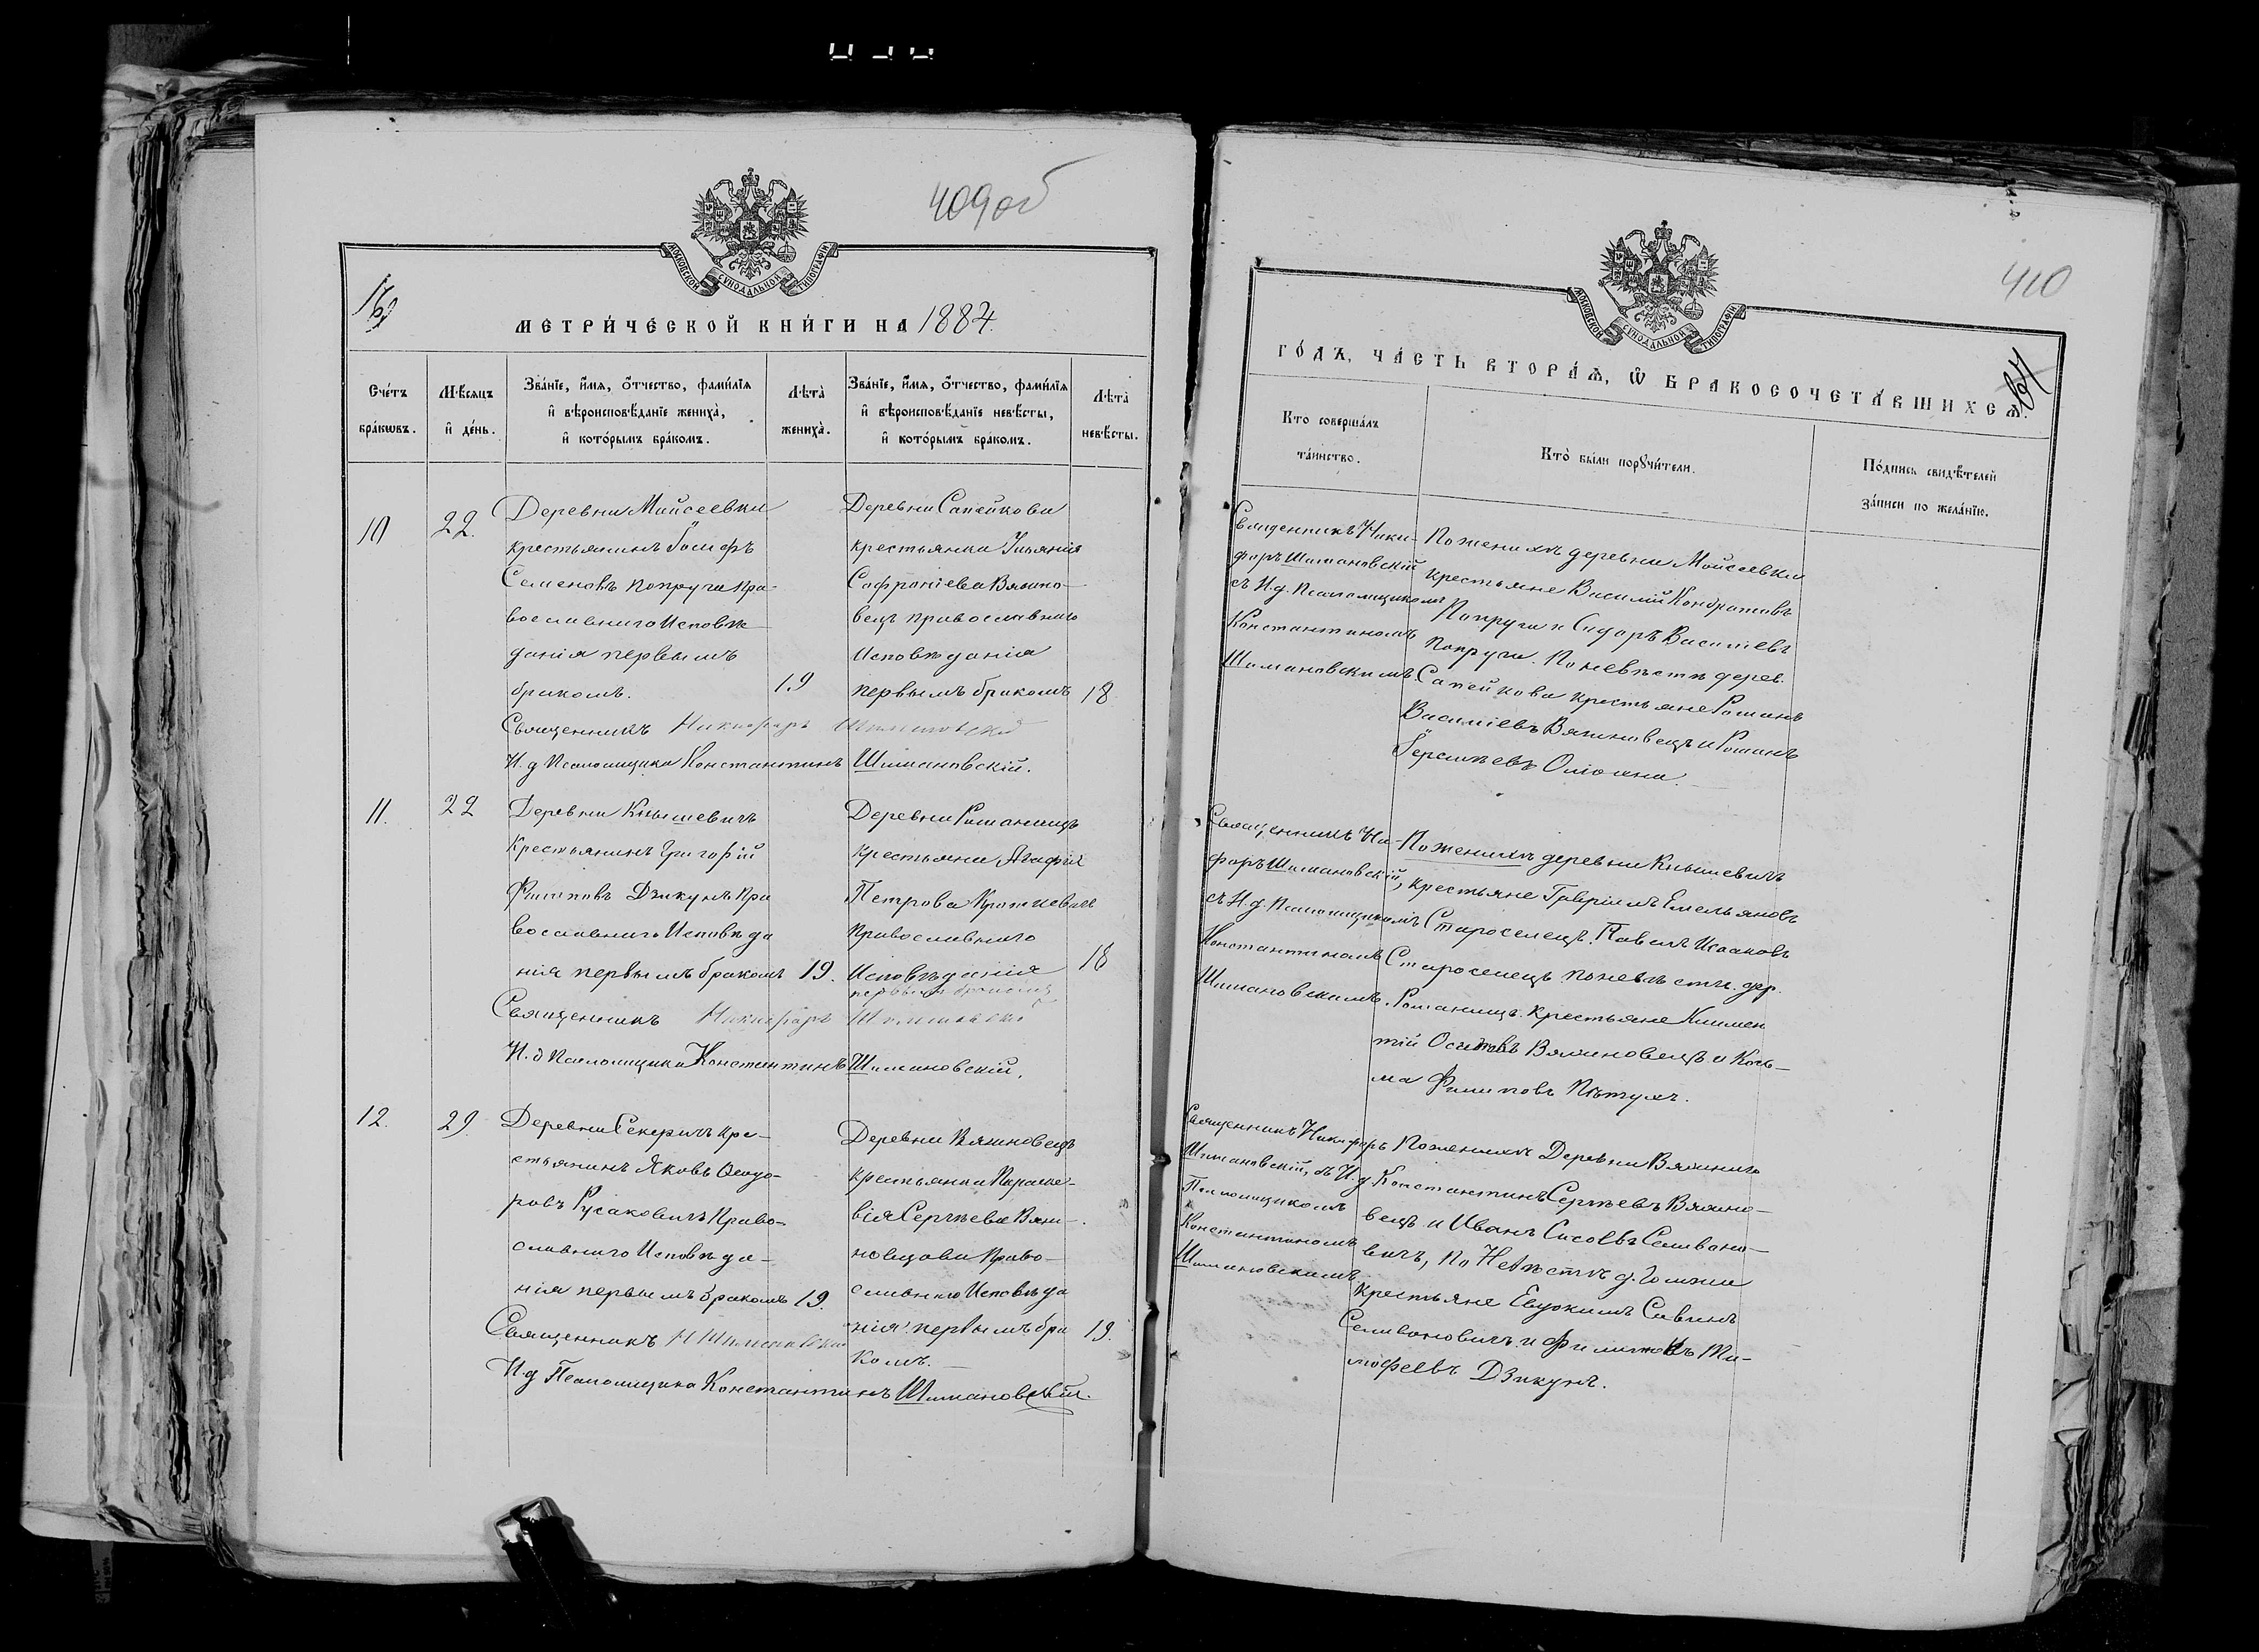 409об
МОСКОВСКОЙ СѴНОДАЛЬНОЙ ТИПОГРАФІИ
МЕТРИ́ЧЕСКОЙ КНИ́ГИ НА 1884.
Сче́тъ бра́кѡвъ.
Мѣ́сяцъ и҆ де́нь.
Зва́нїе, и҆́мѧ, ѻ҆́тчество, фами́лїѧ и҆ вѣроисповѣ́данїе жениха̀, и҆ кото́рымъ бра́комъ.
Лѣта̀ жениха̀.
Зва́нїе, и҆́мѧ, ѻ҆́тчество, фами́лїѧ и҆ вѣроисповѣ́данїе невѣ́сты, и҆ кото́рымъ бра́комъ.
Лѣта̀ невѣ́сты.
10
22.
Деревни Мойсеевки
крестьянинъ Іосифъ
Семеновъ Попруга Пра-
вославнаго Исповѣ
данія первымъ
бракомъ.
19
Деревни Сапейкова
крестьянка Ульянія
Софроніева Вялино-
вецъ православнаго
Исповѣданія
первымъ бракомъ
18
Священникъ Никифоръ Шимановскій
И. д Псаломщика Константинъ Шимановскій.
11.
22
Деревни Кнышевичъ
Крестьянинъ Григорій
Филиповъ Дзикунъ Пра
вославнаго Исповѣда
нія первымъ бракомъ
19.
Деревни Романищъ
крестьянка Агафія
Петрова Кроткевичъ
Православнаго
Исповѣданія
первымъ бракомъ
18
Священникъ Никифоръ Шимановскій
И. д Псаломщика Константинъ Шимановскій.
12.
29.
Деревни Секеричъ Кре-
стьянинъ Яковъ Ѳеодо-
ровъ Русаковичъ Право-
славнаго Исповѣда-
нія первымъ бракомъ
19.
Деревни Вялиновецъ
крестьянка Параске-
вія Сергѣева Вяли-
новцова Право-
славнаго Исповѣда
нія первымъ бра
комъ.
19.
Священникъ Н Шимановскій
И.д Псаломщика Константинъ Шимановскій.
410
МОСКОВСКОЙ СѴНОДАЛЬНОЙ ТИПОГРАФІИ
ГО́ДЪ, ЧА́СТЬ ВТОРА́Ѧ, Ѡ҆ БРАКОСОЧЕТА́ВШИХСѦ.
Кто̀ соверша́лъ та́инство.
Кто̀ бы́ли порꙋчи́тели.
По́дпись свидѣ́телей за́писи по жела́нїю.
Священникъ Ники-
форъ Шимановскій
съ И. д. Псаломщикомъ
Константиномъ
Шимановскимъ.
По женихѣ деревни Мойсеевки
крестьяне Василій Кондратовъ
Попруга и Сидоръ Василіевъ
Попруга. По невѣстѣ дерев.
Сапейкова крестьяне Романъ
Василіевъ Вялиновецъ и Романъ
Священникъ Ни-
форъ Шимановскій,
съ И. д. Псаломщикомъ
Константиномъ
Шимановскимъ.
По женихѣ деревни Кнышевичъ
крестьяне Гавріилъ Емельяновъ
Староселецъ. Павелъ Исааковъ
Староселецъ по невѣстѣ. дер.
Романищъ. крестьяне Климен
тій Осиповъ Вялиновецъ и Козь-
ма Филиповъ Пѣтухъ.
Священникъ Никифоръ
Шимановскій, съ И. д.
Псаломщикомъ
Константиномъ
Шимановскимъ
По женихѣ Деревни
Константинъ Сергѣевъ Вялино-
вецъ и Иванъ Сысоевъ Селивано-
вичъ, По Невѣстѣ д.
крестьяне Евдокимъ Савинъ
Селивановичъ и Филимонъ Ти-
мофеевъ Дзикунъ.